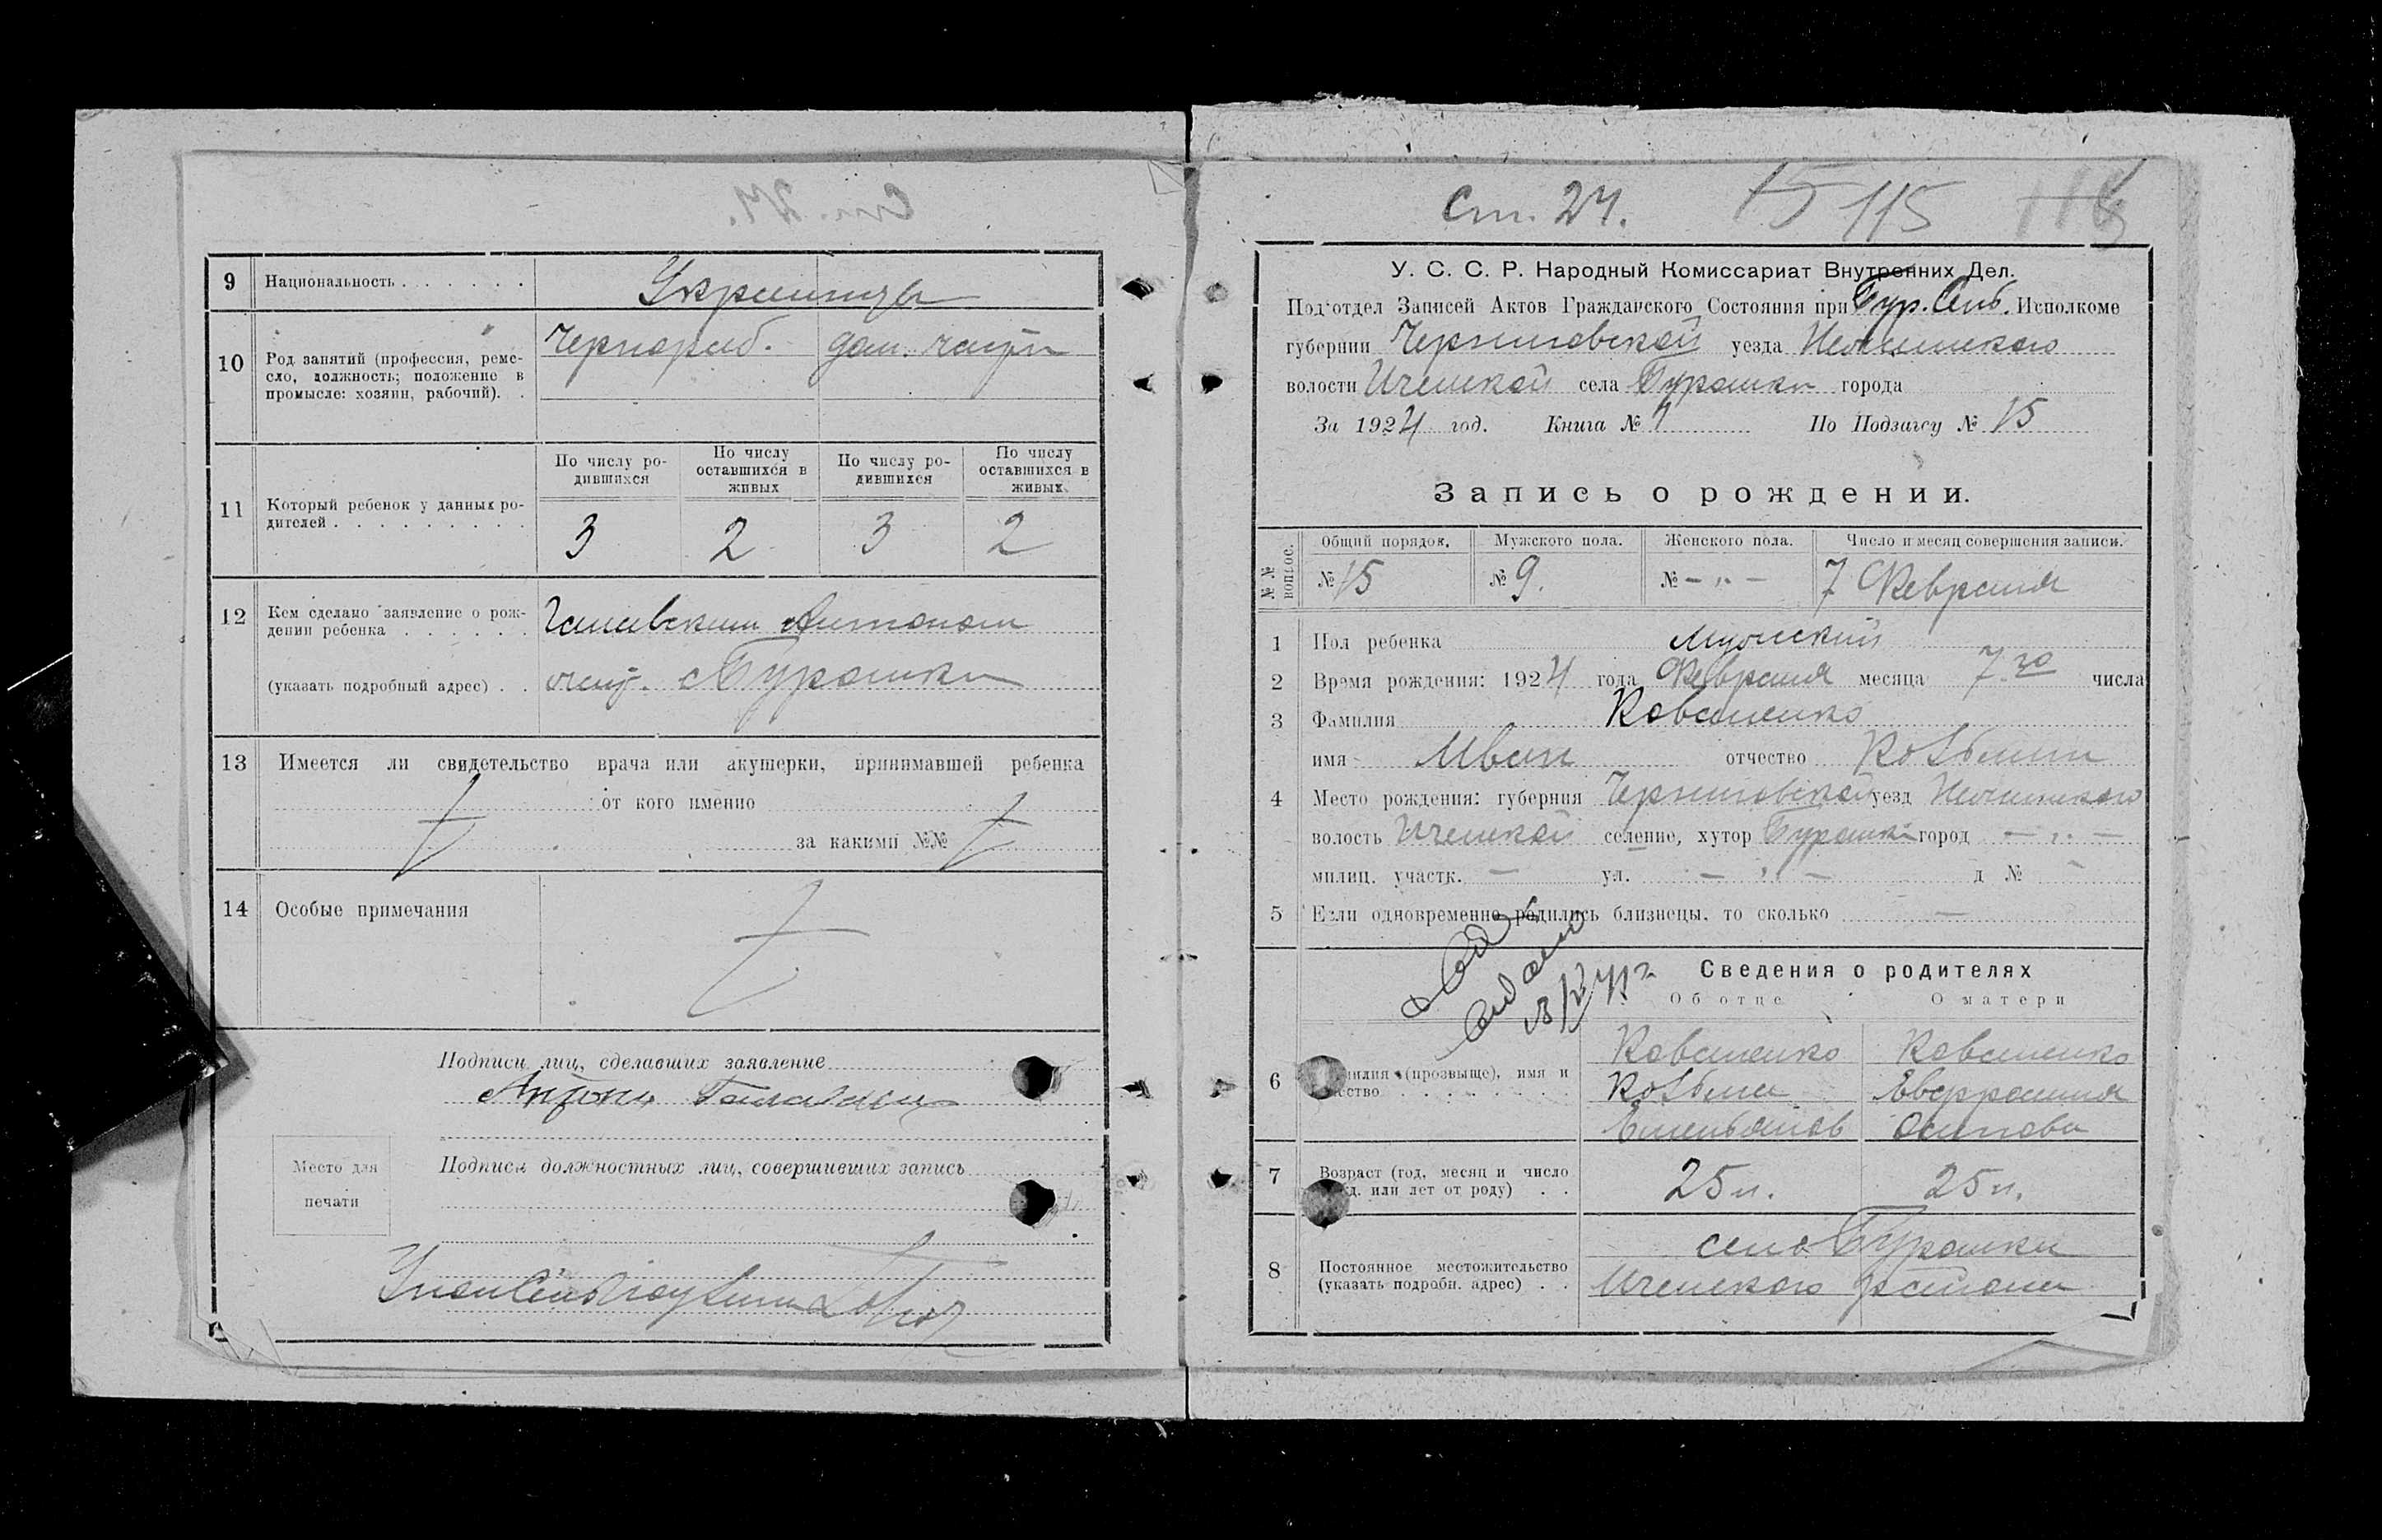 9 Национальность . . . . . . Украинцы
10 Род занятий (профессия, реме-
сло, должность; положение в
промысле: хозяин, рабочий). .
Чернораб. дом.
11 Который ребенок у данных ро-
дителей . . . . . . . . .
По числу ро-
дившихся
По числу
оставшихся в
живых
По числу ро-
дившихся
По числу
оставшихся в
живых.
3 2 3 2
12 Кем сделано заявление о рож-
дении ребенка . . . . . .
Антоном
(указать подробный адрес) . . с Бурамки
13 Имеется ли свидетельство врача или акушерки, принимавшей ребенка
от кого именно
за какими №№
14 Особые примечания
Подписи лиц, сделавших заявление
Место для
печати
Подписи должностных лиц, совершивших запись
Ст. 27. 15 115
У. С. С. Р. Народный Комиссариат Внутренних Дел.
Под'отдел Записей Актов Гражданского Состояния при Бур. Сель. Исполкоме
губернии Черниговской уезда Нежинского
волости Иченской села Бурамки города
За 1924 год. Книга № 1 По Подзагсу № 15
Запись о рождении.
№№ вопрос.
Общий порядок. Мужского пола. Женского пола. Число и месяц совершения записи.
№ 15 № 9. № — „ — 7 Февраля
1 Пол ребенка Мужский
2 Время рождения: 1924 года Февраля месяца 7 го числа
3 Фамилия Коваленко
имя Иван отчество Козьмин
4 Место рождения: губерния Черниговской уезд Нежинского
волость Иченской селение, хутор Бурамки город — „ —
милиц. участк. — ул. — „ — д № —
5 Если одновременно родились близнецы, то сколько —
Сведения о родителях
Об отце О матери
6 Фамилия (прозвище), имя и
отчество . . . . . . . .
Коваленко Коваленко
Козьма Евфросиния
Емельянов Осипова
7 Возраст (год, месяц и число
рожд. или лет от роду) . .
25 л. 25 л.
8 Постоянное местожительство
(указать подробн. адрес) . .
село Бурамки
Иченского района